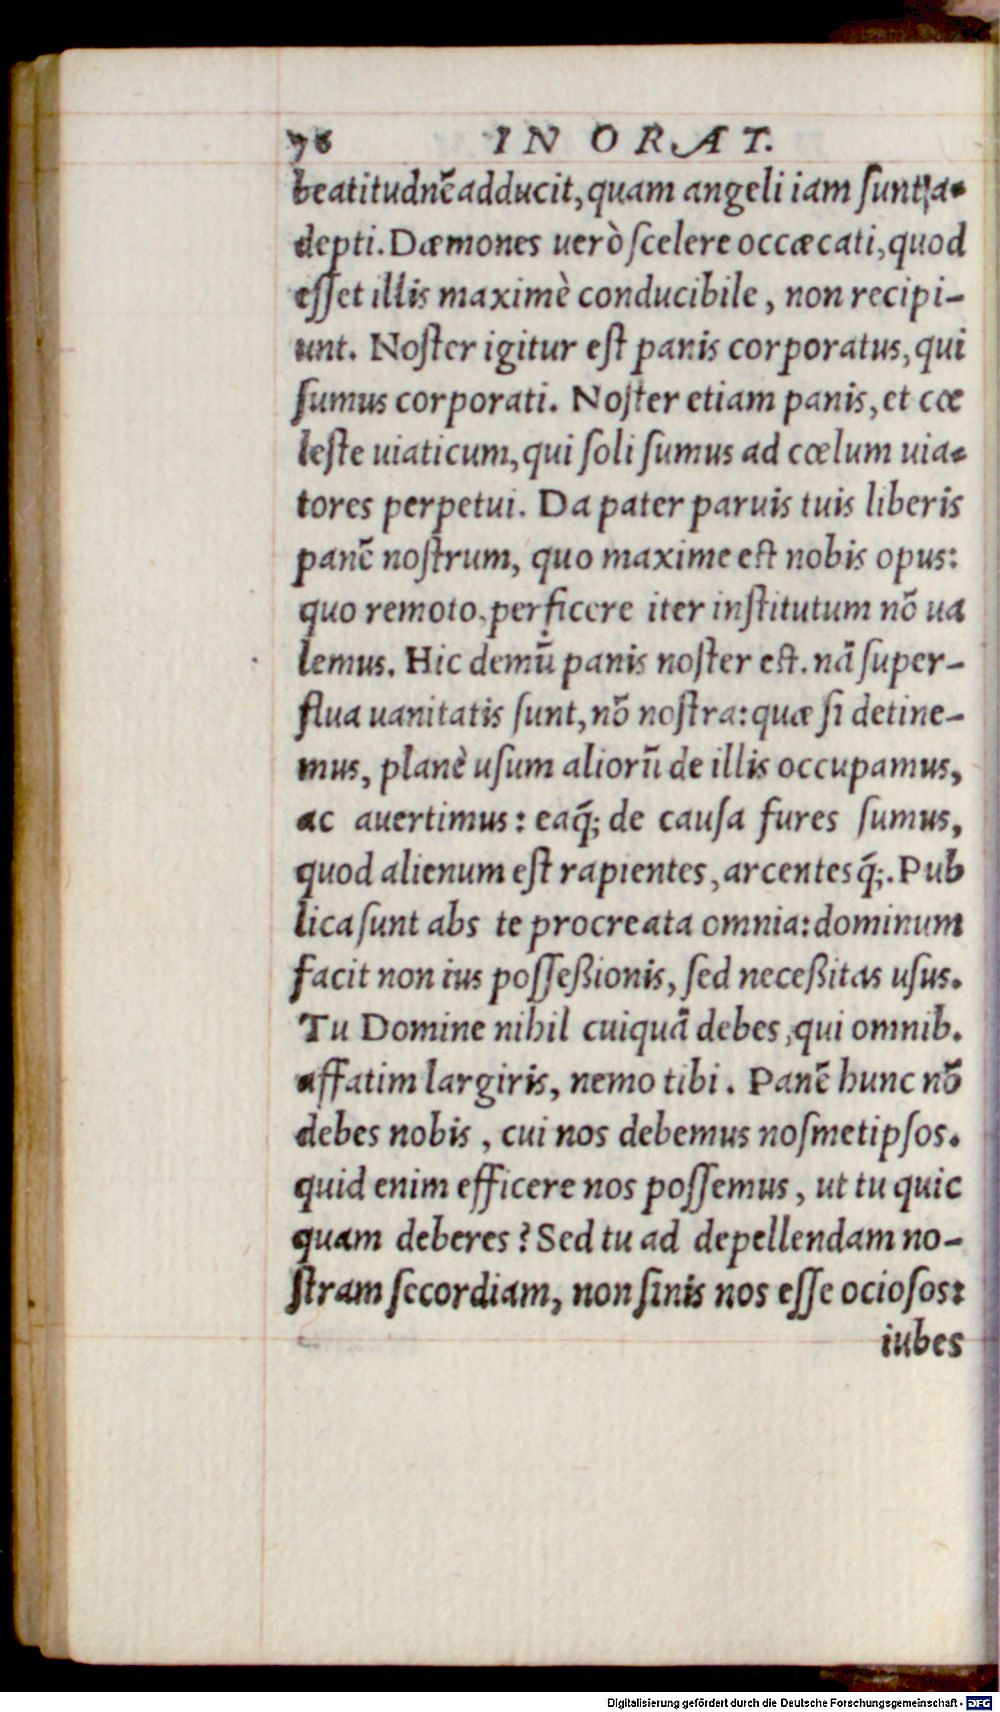 76 IN ORAT.
beatitudnē adducit, quam angeli iam sunt, a-
depti. Dæmones uerò scelere occæcati, quod
esset illis maximè conducibile, non recipi-
unt. Noster igitur est panis corporatus, qui
sumus corporati. Noster etiam panis, et cœ
leste uiaticum, qui soli sumus ad cœlum uia-
tores perpetui. Da pater paruis tuis liberis
panē nostrum, quo maxime est nobis opus:
quo remoto, perficere iter institutum nō ua
lemus. Hic demū panis noster est. nā super-
flua uanitatis sunt, nō nostra: quæ si detine-
mus, planè usum aliorū de illis occupamus,
ac auertimus: eaq̃; de causa fures sumus,
quod alienum est rapientes, arcentesq̃;. Pub
lica sunt abs te procreata omnia: dominum
facit non ius posseßionis, sed neceßitas usus.
Tu Domine nihil cuiquā debes, qui omnib.
affatim largiris, nemo tibi. Panē hunc nō
debes nobis, cui nos debemus nosmetipsos.
quid enim efficere nos possemus, ut tu quic
quam deberes? Sed tu ad depellendam no-
stram secordiam, non sinis nos esse ociosos:
iubes
Digitalisierung gefördert durch die Deutsche Forschungsgemeinschaft - DFG